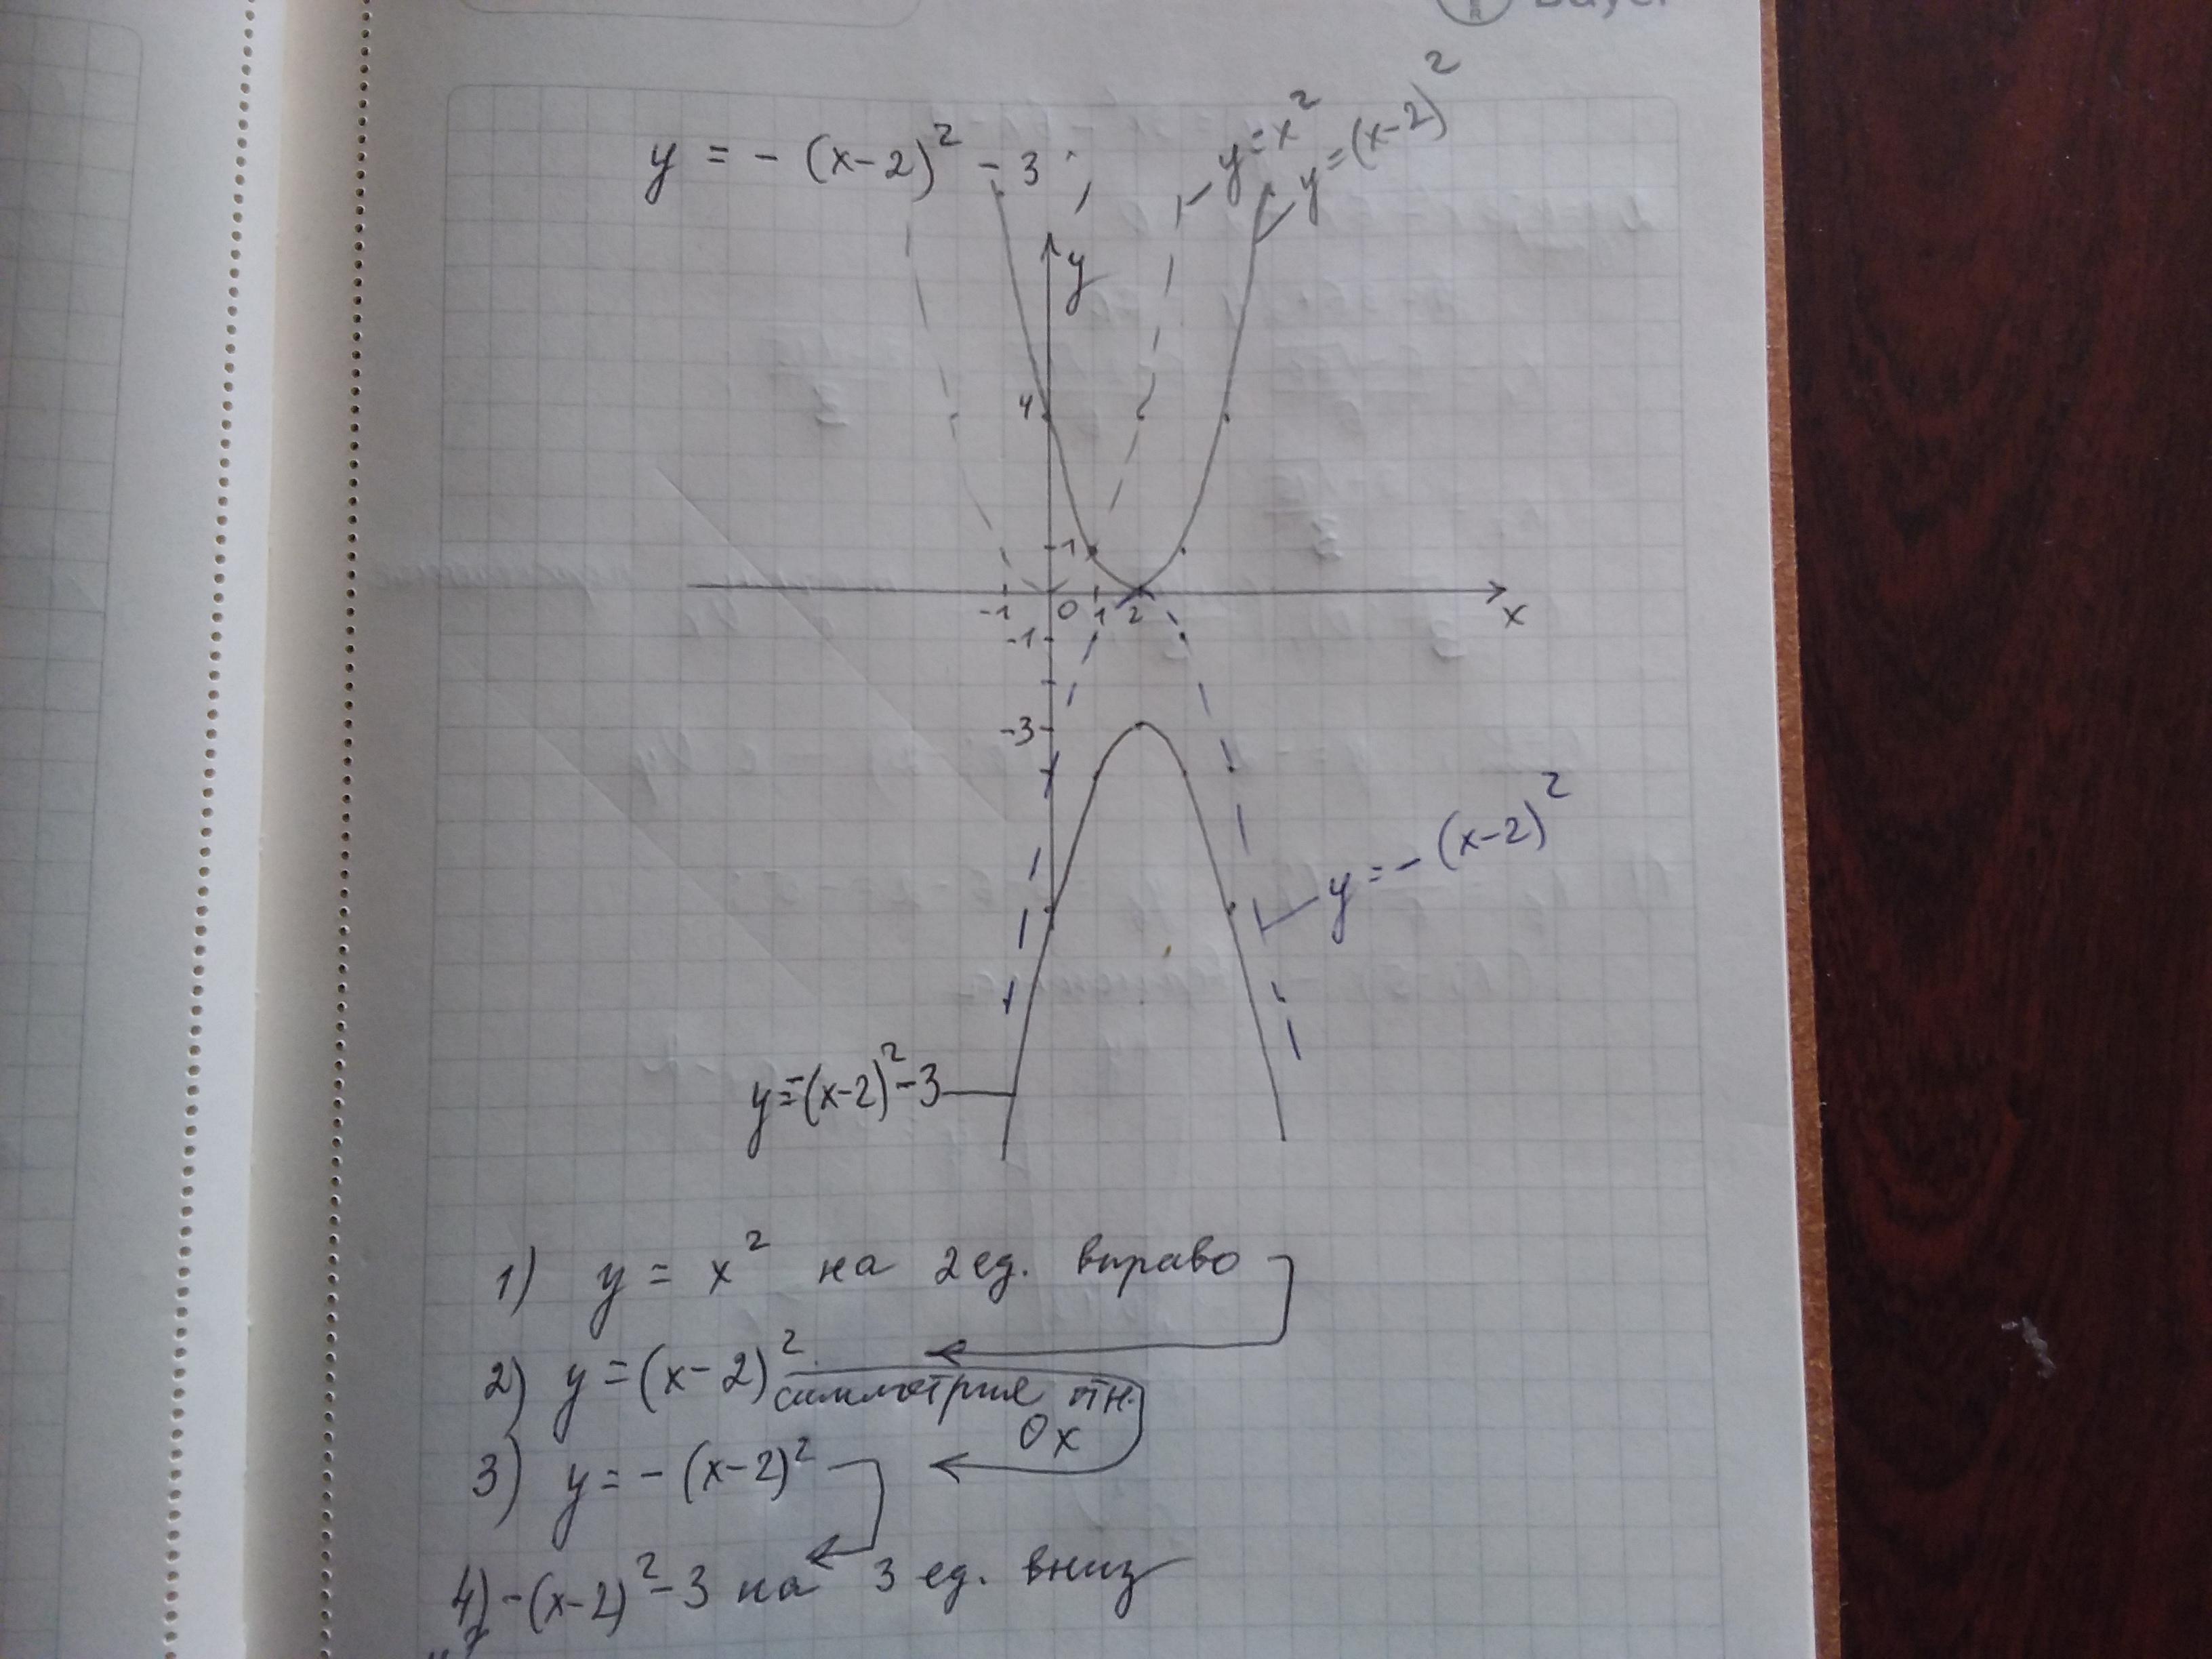 Bayer
y = - (x-2)² - 3
y = x²
y = (x-2)²
y
4
1
-1 0 1 2 x
-1
-3
y = - (x-2)²
y = -(x-2)² - 3
1) y = x² на 2 ед. вправо
2) y = (x-2)² симметрия отн.
Ox
3) y = - (x-2)²
4) -(x-2)² - 3 на 3 ед. вниз